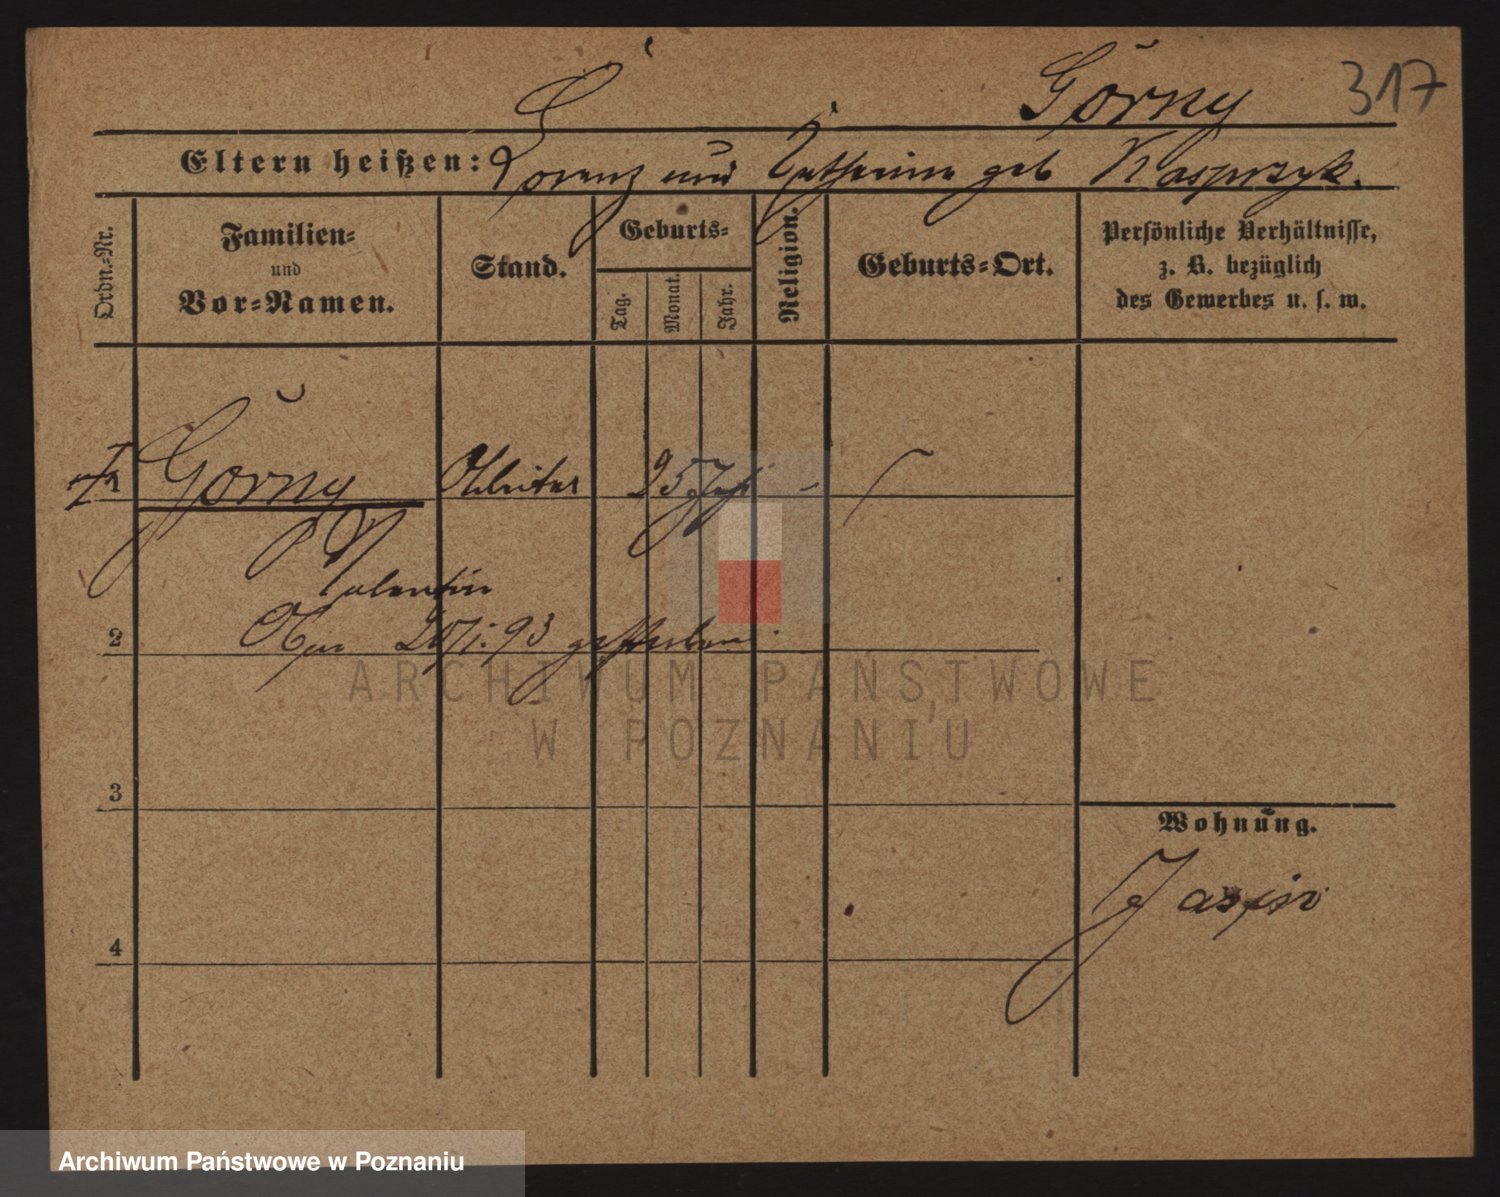 Górny 317
Eltern heißen: Lorenz und Catharina geb Kasprzyk.
Ordn.-Nr.
Familien-
und
Vor-Namen.
Stand.
Geburts-
Tag.
Monat.
Jahr.
Religion.
Geburts-Ort.
Persönliche Verhältnisse,
z. B. bezüglich
des Gewerbes u. s. w.
Górny Arbeiter 25 Jahr -
Valentin
2 Am 20/1. 93 gestorben
3
4
Wohnung.
ARCHIWUM PAŃSTWOWE
W POZNANIU
Archiwum Państwowe w Poznaniu